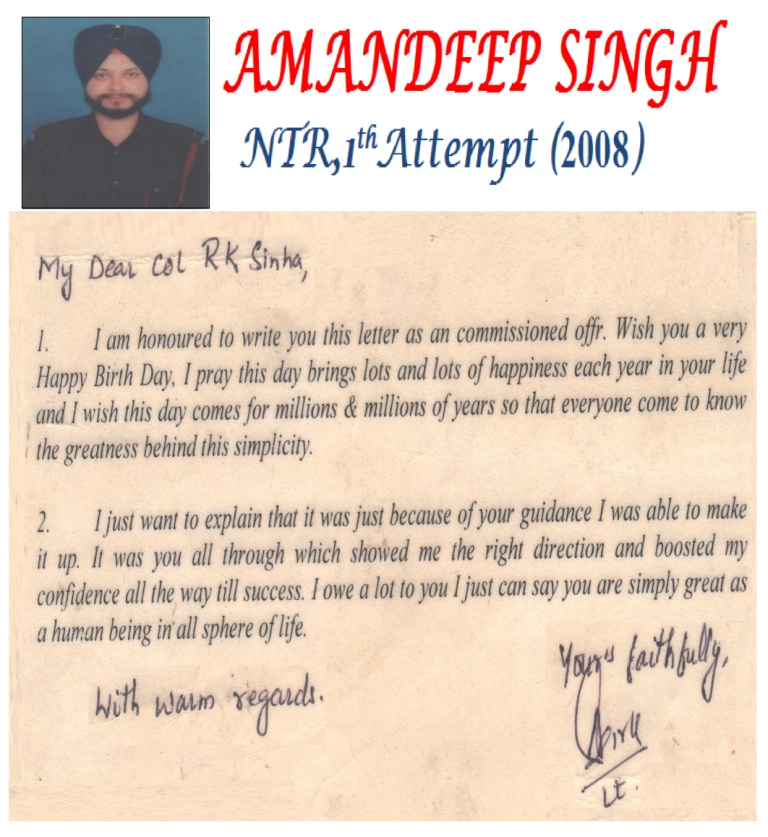 AMANDEEP SINGH
NTR,1th Attempt (2008)
My Dear Col RK Sinha,
1. I am honoured to write you this letter as an commissioned offr. Wish you a very
Happy Birth Day, I pray this day brings lots and lots of happiness each year in your life
and I wish this day comes for millions & millions of years so that everyone come to know
the greatness behind this simplicity.
2. I just want to explain that it was just because of your guidance I was able to make
it up. It was you all through which showed me the right direction and boosted my
confidence all the way till success. I owe a lot to you I just can say you are simply great as
a human being in all sphere of life.
With warm regards.
Your's faithfully,
Lt.